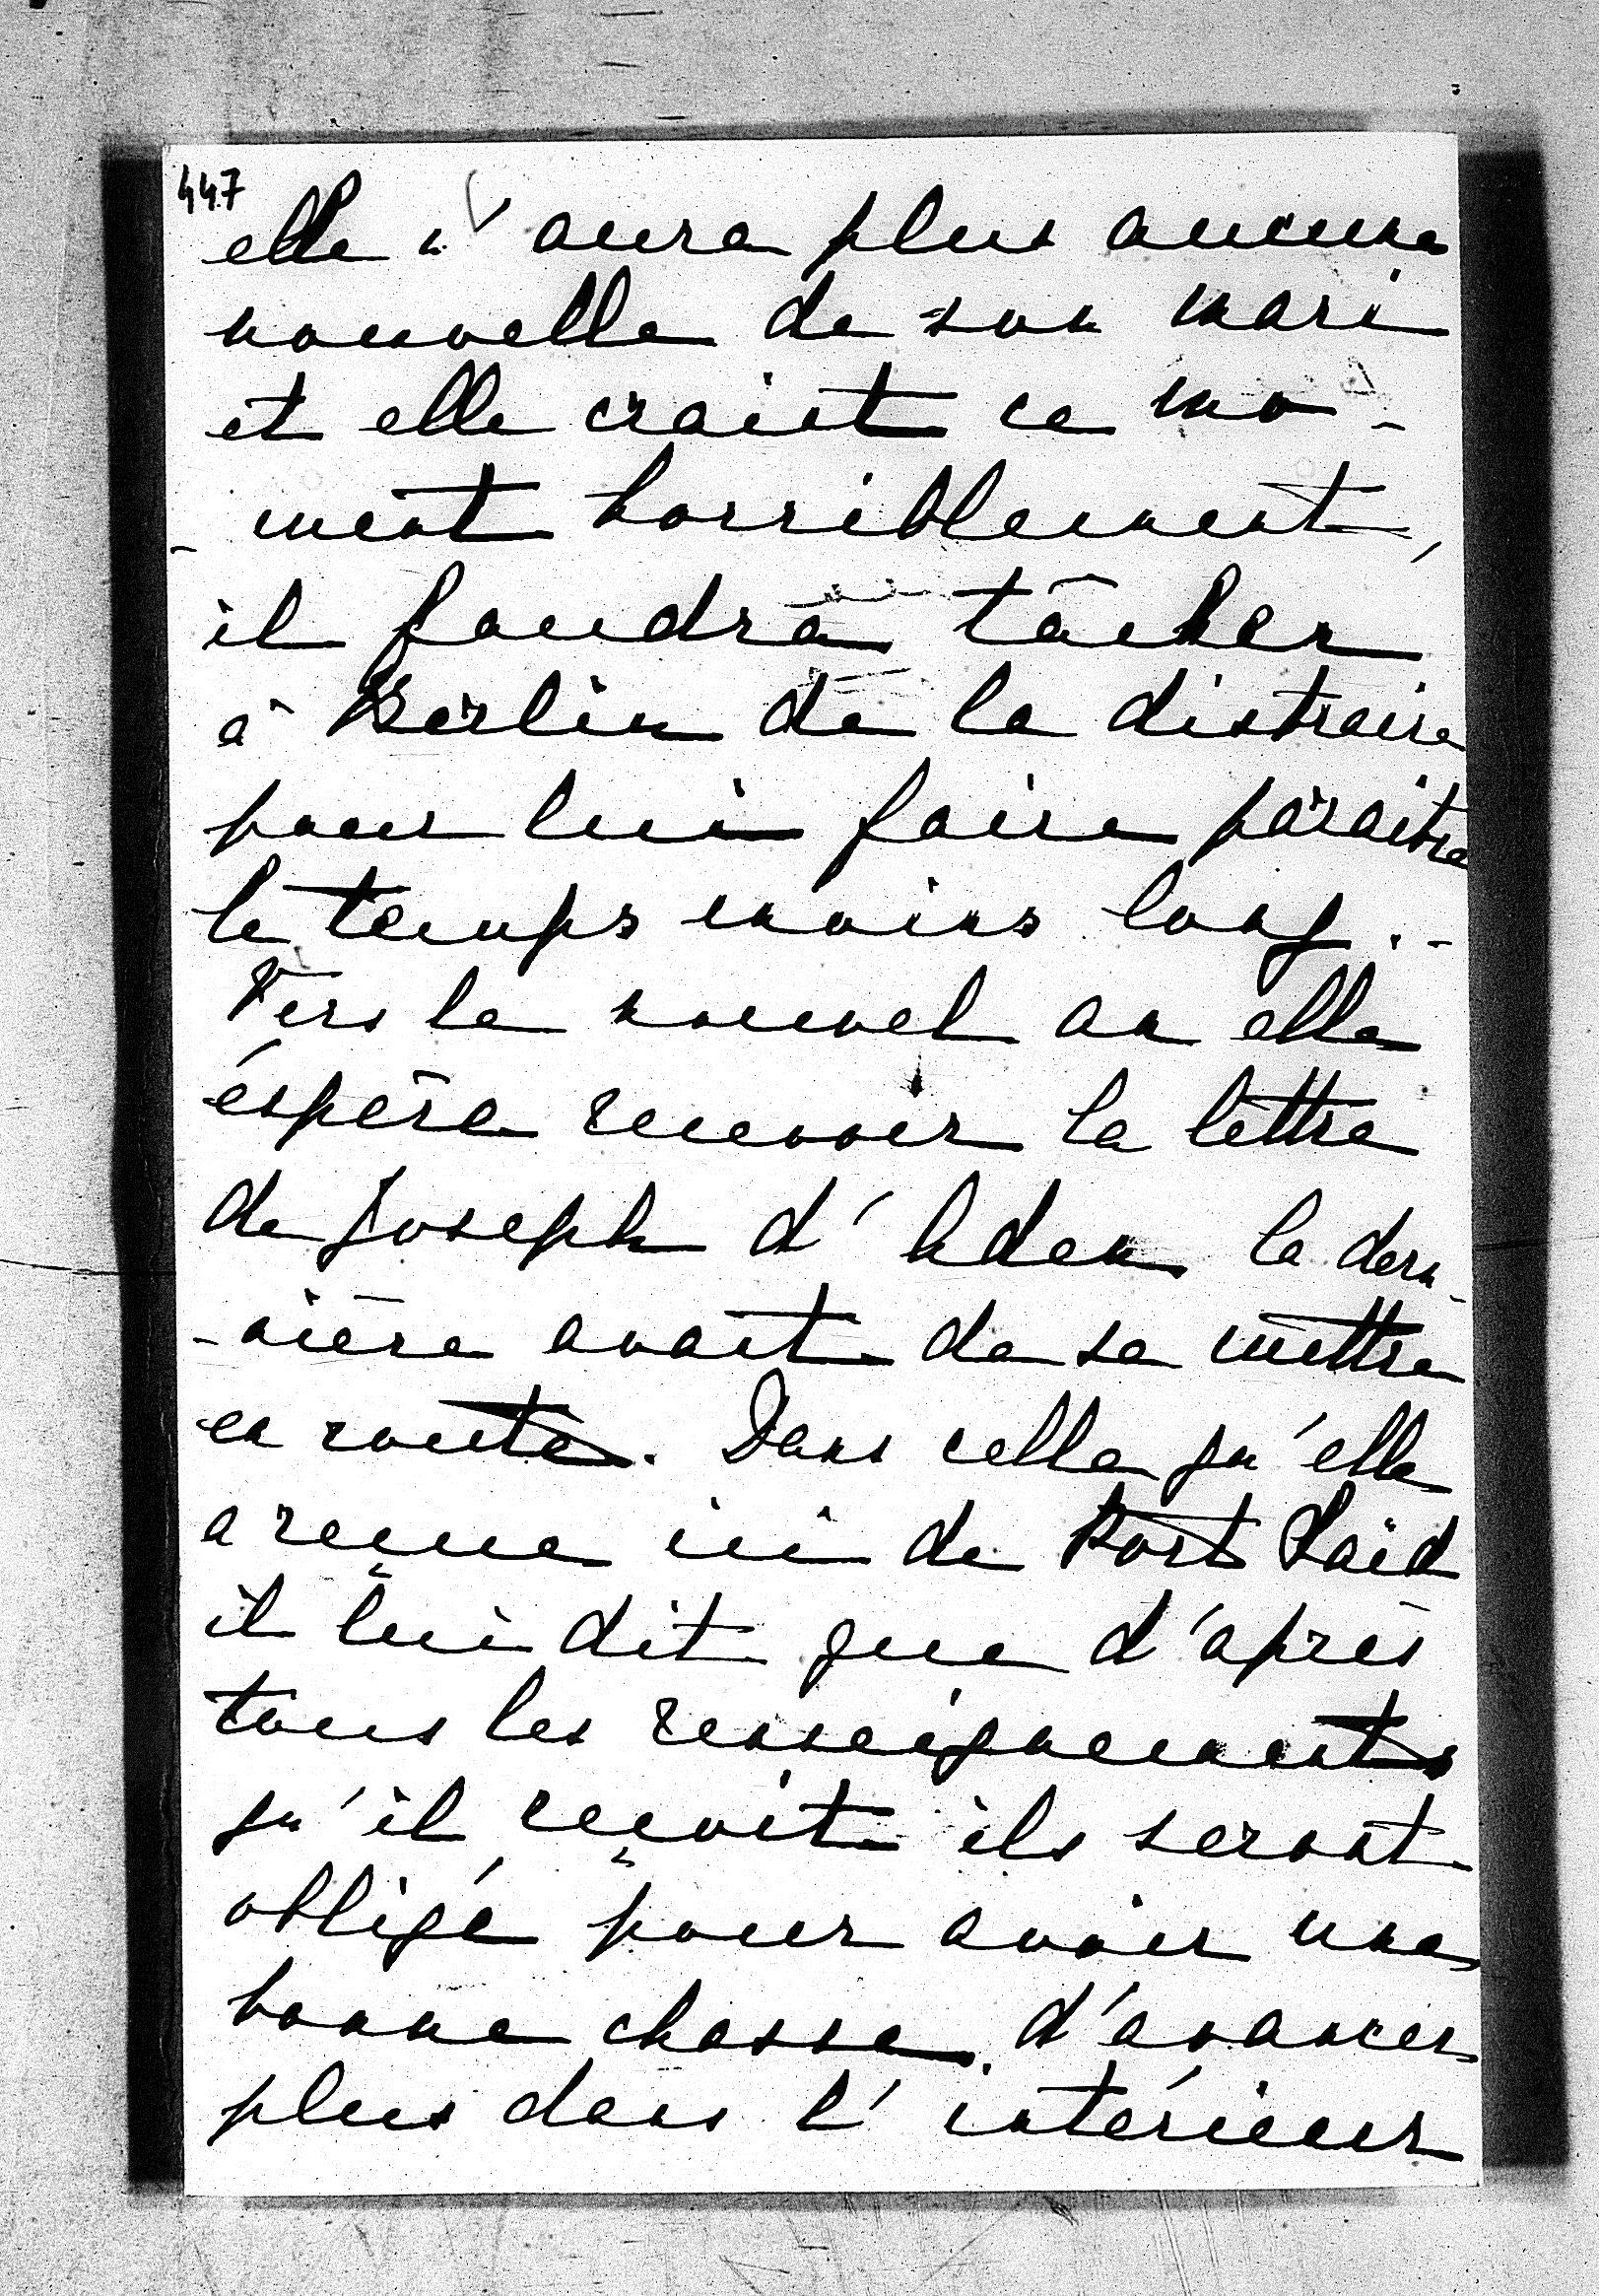 447
elle n'aura plus aucune
nouvelle de son mari
et elle craint ce mo-
-ment horriblement,
il faudra tâcher
à Berlin de la distraire
pour lui faire paraitre
le temps moins long. -
Vers le nouvel an elle
éspère recevoir la lettre
de Joseph d'Aden la der-
-nière avant de se mettre
en route. Dans celle qu'elle
a reçue ici de Port Said
il lui dit que d'après
tous les renseignements
qu'il reçoit ils seront
obligé pour avoir une
bonne chasse, d'avancer
plus dans l'intérieur